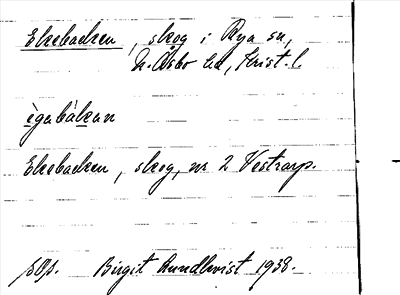 Ekebacken, skog i Rya sn,
N. Åsbo hd, Krist. l.
ègabàkan
Ekebacken, skog, nr 2 Vestrarp.
sOp. Birgit Rundkvist 1938.